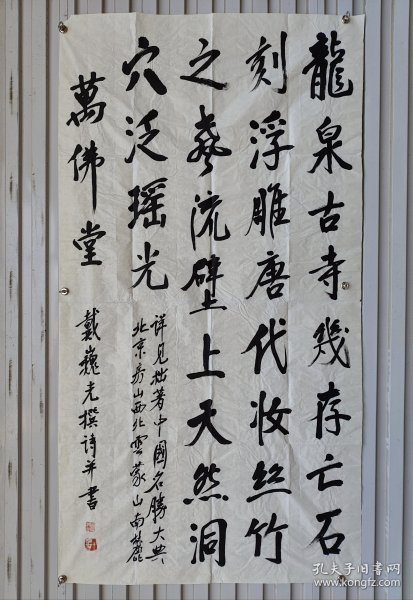 龍泉古寺幾存亡石
刻浮雕唐代妝丝竹
之聲流壁上天然洞
穴泛瑶光
詳見拙著中國名勝大典
北京房山西北雲蒙山南麓
萬佛堂
戴巍光撰詩并書
孔夫子旧书网
www.kongfz.com